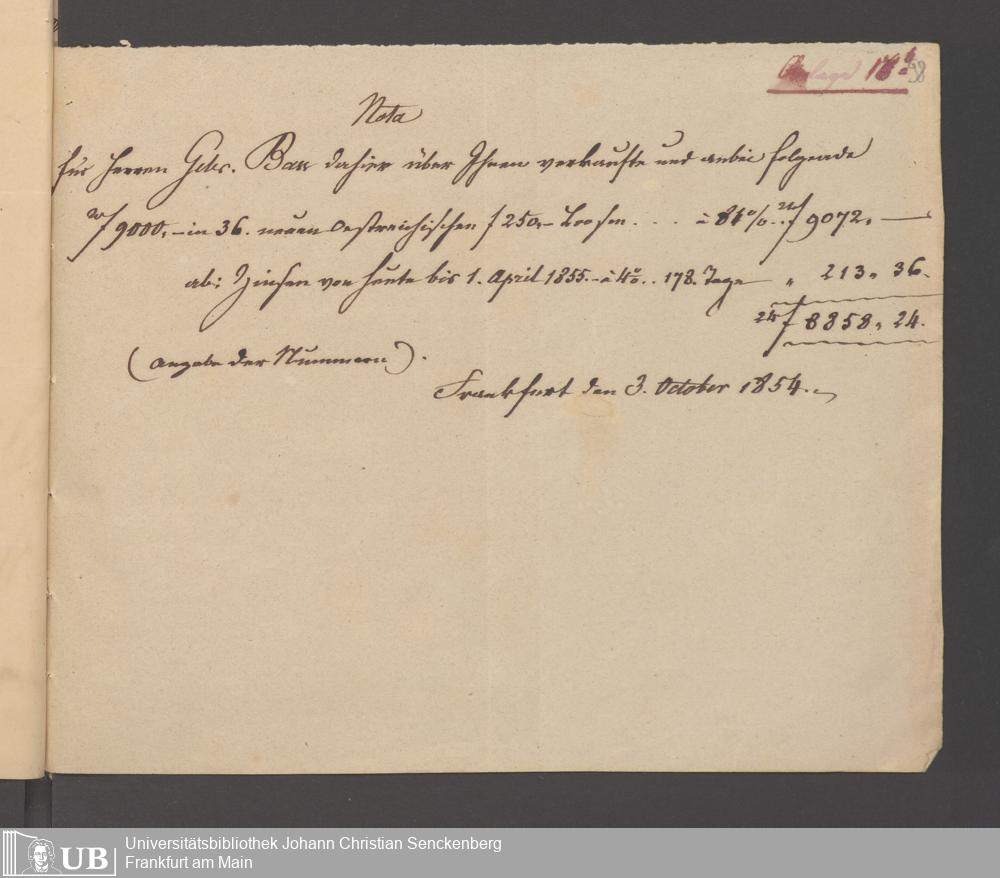 Anlage 18 b
98
Nota
für Herren Gebr. Bass dahier über Ihnen verkaufte und anbei folgende
f 9000,– in 36. neuen Oestreichischen f 250,– Loosen . . . à 84 % . f 9072. —
ab: Zinsen von heute bis 1. April 1855. – à 4% . . 178. Tage " 213 " 36.
24 f 8858 " 24.
(Angabe der Nummern).
Frankfurt den 3. October 1854.
UB
Universitätsbibliothek Johann Christian Senckenberg
Frankfurt am Main